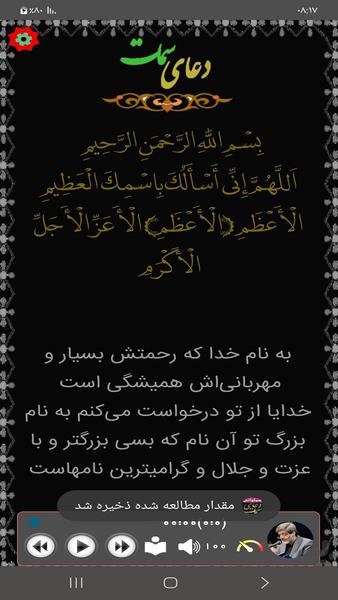 ٪۸۰
۰۸:۱۷
دعای سمات
بِسْمِ اللهِ الرَّحْمَنِ الرَّحِیمِ
اَللَّهُمَّ إِنِّی أَسْأَلُكَ بِاسْمِكَ الْعَظِیمِ
الْأَعْظَمِ ﴿الْأَعْظَمِ﴾ الْأَعَزِّ الْأَجَلِّ
الْأَكْرَمِ
به نام خدا که رحمتش بسیار و
مهربانی‌اش همیشگی است
خدایا از تو درخواست می‌کنم به نام
بزرگ تو آن نام که بسی بزرگتر و با
عزت و جلال و گرامیترین نامهاست
مقدار مطالعه شده ذخیره شد
00:00(0:0)
۱۰۰